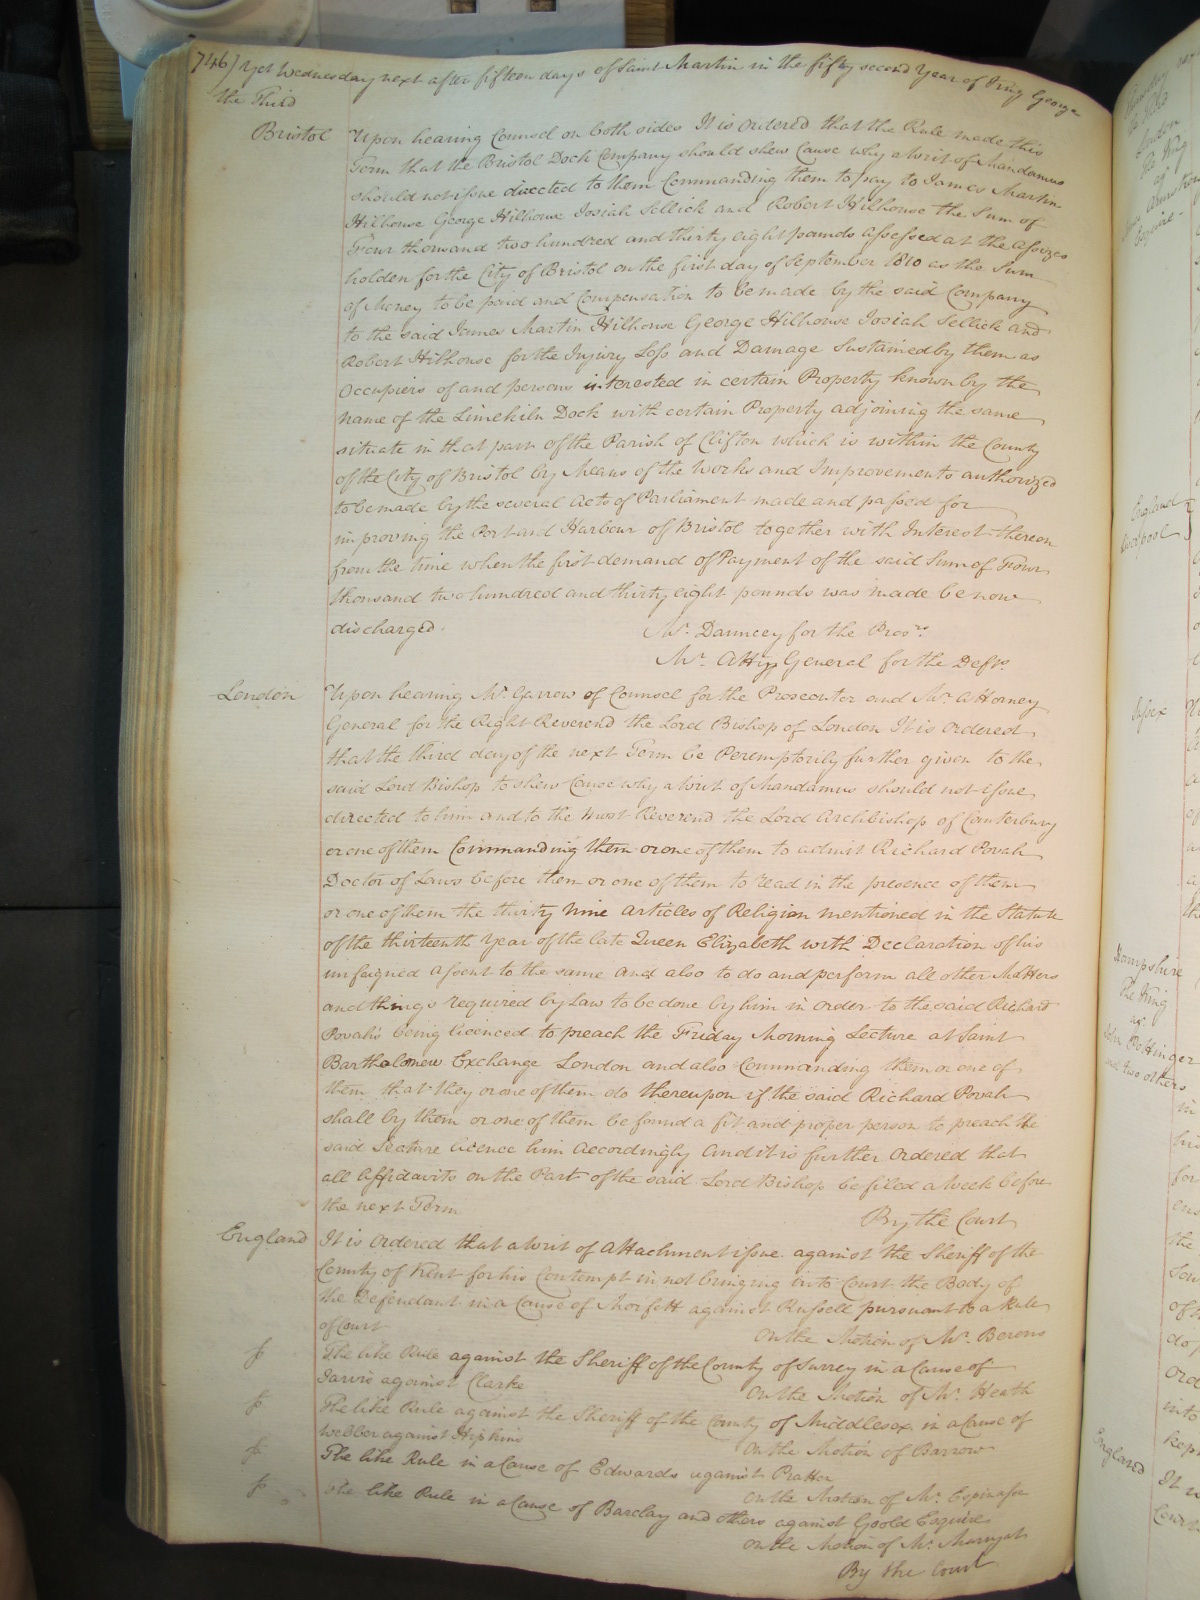 746) Yet Wednesday next after fifteen days of Saint Martin in the fifty second Year of King George
the Third
Bristol Upon hearing Counsel on both sides It is Ordered that the Rule made this
Term that the Bristol Dock Company should shew Cause why a Writ of Mandamus
should not issue directed to them Commanding them to pay to James Martin
Hilhouse George Hilhouse Josiah Sellick and Robert Hilhouse the Sum of
Four thousand two hundred and thirty eight pounds Assessed at the Assizes
holden for the City of Bristol on the first day of September 1810 as the Sum
of Money to be paid and Compensation to be made by the said Company
to the said James Martin Hilhouse George Hilhouse Josiah Sellick and
Robert Hilhouse for the Injury Loss and Damage Sustained by them as
Occupiers of and persons interested in certain Property known by the
name of the Limekiln Dock with certain Property adjoining the same
situate in that part of the Parish of Clifton which is within the County
of the City of Bristol by Means of the Works and Improvements authorized
to be made by the several Acts of Parliament made and passed for
improving the Port and Harbour of Bristol together with Interest thereon
from the time when the first demand of Payment of the said Sum of Four
thousand two hundred and thirty eight pounds was made be now
discharged.
Mr. Dauncey for the Pros.rs
Mr. Atty General for the Defts.
London Upon hearing Mr. Garrow of Counsel for the Prosecutor and Mr. Attorney
General for the Right Reverend the Lord Bishop of London It is Ordered
that the third day of the next Term be Peremptorily further given to the
said Lord Bishop to shew Cause why a Writ of Mandamus should not issue
directed to him and to the Most Reverend the Lord Archbishop of Canterbury
or one of them Commanding them or one of them to admit Richard Povah
Doctor of Laws before them or one of them to read in the presence of them
or one of them the thirty nine Articles of Religion mentioned in the Statute
of the thirteenth Year of the late Queen Elizabeth with Declaration of his
unfeigned Assent to the same and also to do and perform all other Matters
and things required by Law to be done by him in Order to the said Richard
Povah's being licenced to preach the Friday Morning Lecture at Saint
Bartholomew Exchange London and also Commanding them or one of
them that they or one of them do thereupon if the said Richard Povah
shall by them or one of them be found a fit and proper person to preach the
said Lecture licence him Accordingly And it is further Ordered that
all Affidavits on the Part of the said Lord Bishop be filed a Week before
the next Term
By the Court
England It is Ordered that a Writ of Attachment issue against the Sheriff of the
County of Kent for his Contempt in not bringing into Court the Body of
the Defendant in a Cause of against Russell pursuant to a Rule
of Court
On the Motion of Mr. Berens
The like Rule against the Sheriff of the County of Surrey in a Cause of
Jarvis against Clarke
On the Motion of Mr. Heath
The like Rule against the Sheriff of the County of Middlesex in a Cause of
Webber against Hipkins
On the Motion of Barrow
The like Rule in a Cause of Edwards against Pratten
On the Motion of Mr. Espinasse
The like Rule in a Cause of Barclay and others against Goold Esquire
On the Motion of Mr. Marryat
By the Court
London
The King
agt
England
Liverpool
Sussex
Hampshire
The King
agt
John Pottinger
and two others
England